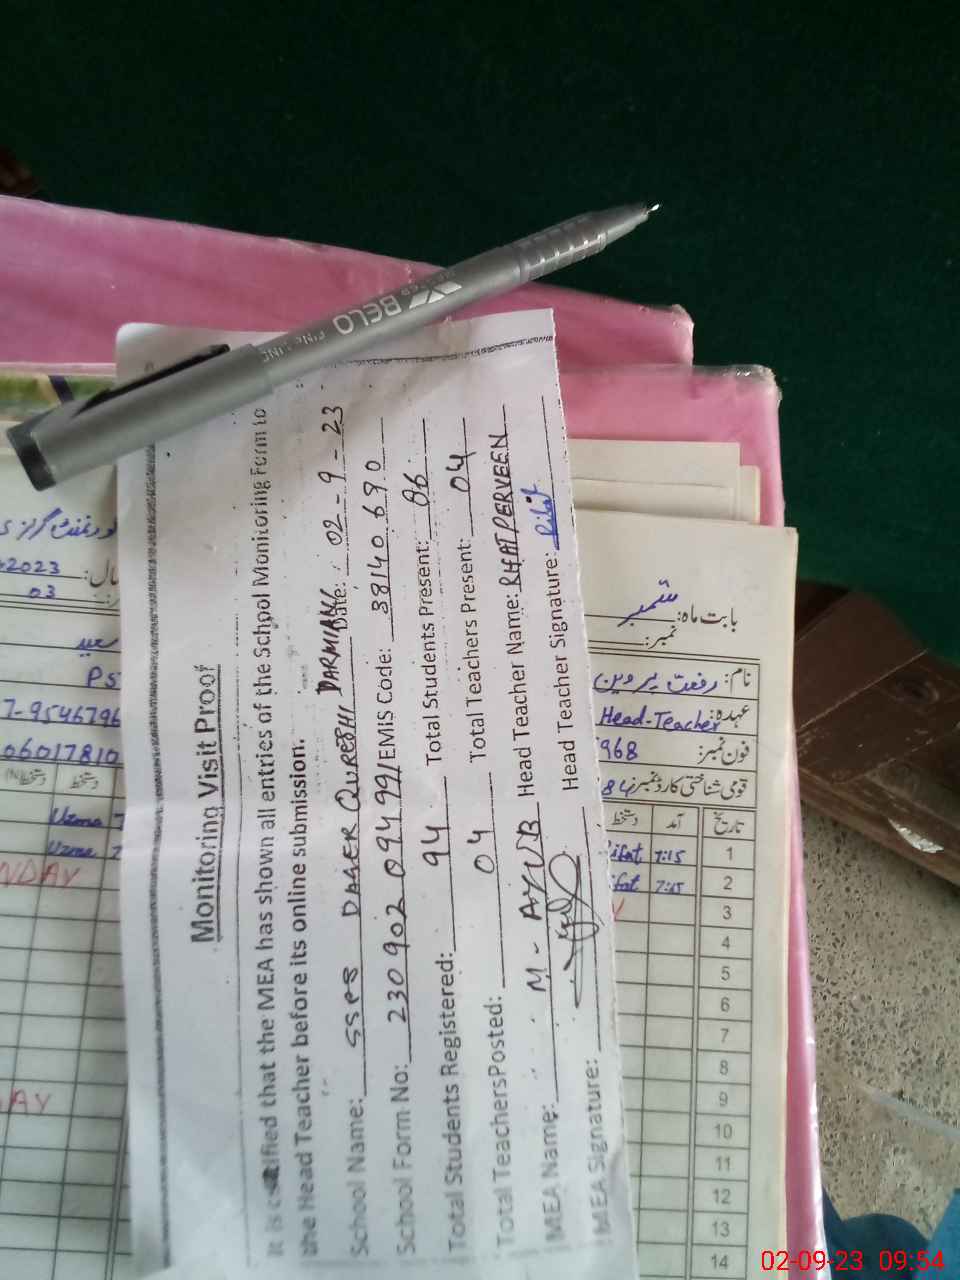 Monitoring Visit Proof
It is certified that the MEA has shown all entries of the School Monitoring Form to
the Head Teacher before its online submission.
School Name: GGPS DAGER QURESHI DARMIANG Date: 02-9-23
School Form No: 230902094991 EMIS Code: 38140690
Total Students Registered: 94 Total Students Present: 86
Total Teachers Posted: 04 Total Teachers Present: 04
MEA Name: M-AYUB Head Teacher Name: RIFAT PERVEEN
MEA Signature: Head Teacher Signature: Rifat
BELO
2023
03
PS
7-9546796
06017810
دستخط
Uzma
Uzma
NDAY
AY
بابت ماہ: ستمبر
نمبر:
نام: رفعت پروین
عہدہ: Head-Teacher
فون نمبر: 968
قومی شناختی کارڈ نمبر: 84
تاریخ آمد دستخط
1 7:15 Rifat
2 7:15 Rifat
3
4
5
6
7
8
9
10
11
12
13
14
02-09-23 09:54